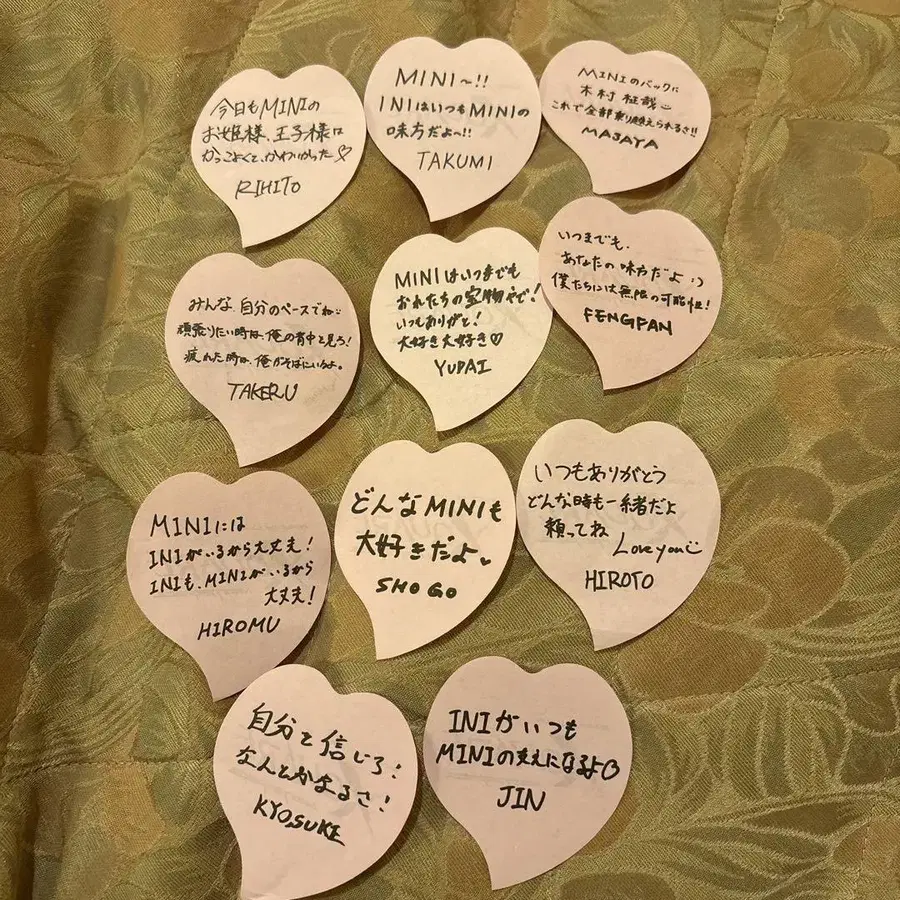 今日もMINIの
お姫様、王子様は
かっこよくて、かわいかった♡
RIHITO
MINI〜!!
INIはいつもMINIの
味方だよ〜!!
TAKUMI
MINIのバックに
木村柾哉
これで全部乗り越えられるさ!!
MASAYA
みんな、自分のペースでね
頑張りたい時は、俺の背中を見ろ!
疲れた時は、俺がそばにいるよ。
TAKERU
MINIはいつまでも
おれたちの宝物やで!
いつもありがと!
大好き大好き♡
YUDAI
いつまでも、
あなたの味方だよ :)
僕たちには無限の可能性!
FENGFAN
MINIには
INIがいるから大丈夫!
INIも、MINIがいるから
大丈夫!
HIROMU
どんなMINIも
大好きだよ♥
SHOGO
いつもありがとう
どんな時も一緒だよ
頼ってね
Love you
HIROTO
自分を信じろ!
なんとかなるさ!
KYOSUKE
INIがいつも
MINIの支えになるよ♡
JIN